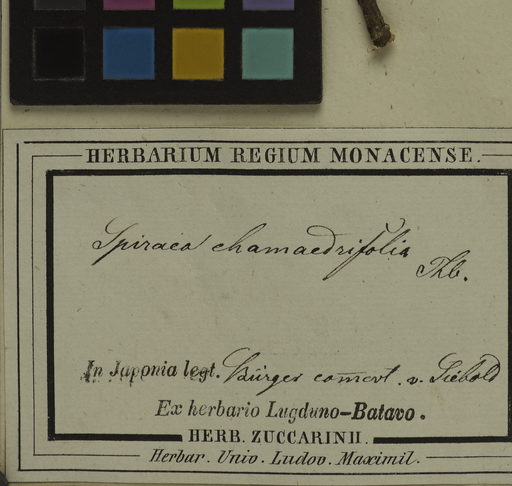 HERBARIUM REGIUM MONACENSE.
Spiraea chamaedrifolia
Thb.
In Japonia legt. Bürger comert. v. Siebold
Ex herbario Lugduno-Batavo.
HERB. ZUCCARINII.
Herbar. Univ. Ludov. Maximil.